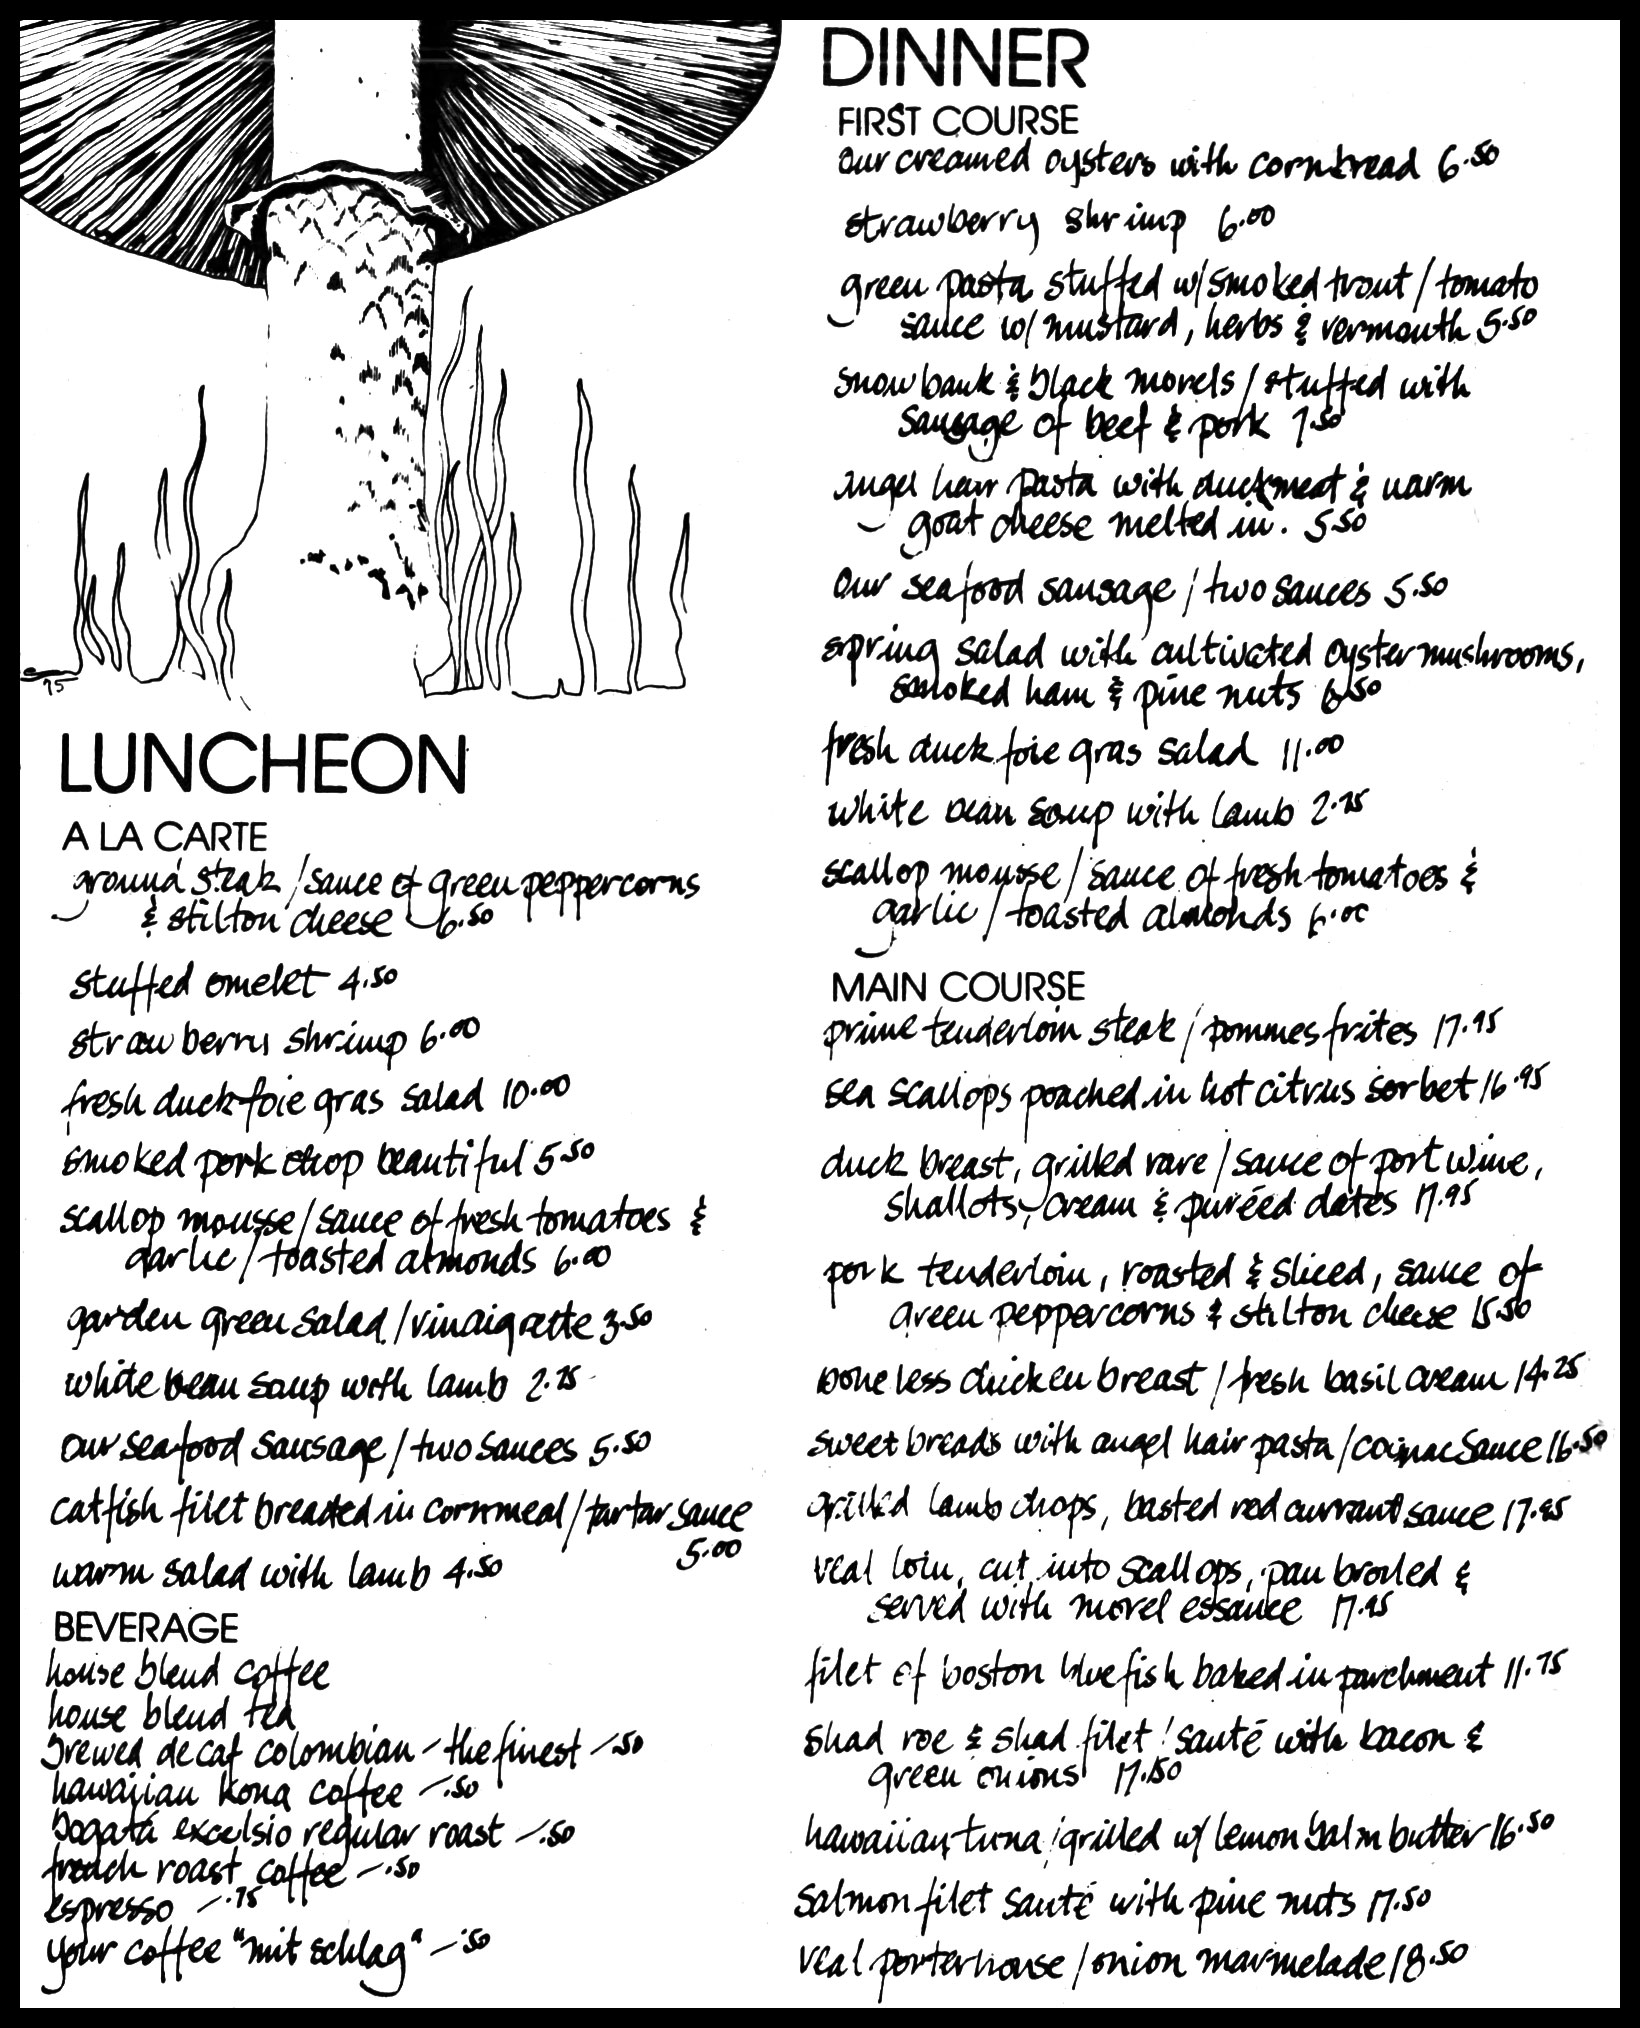 LUNCHEON
A LA CARTE
ground steak / sauce of green peppercorns
& stilton cheese 6.50
stuffed omelet 4.50
strawberry shrimp 6.00
fresh duck foie gras salad 10.00
smoked pork chop beautiful 5.50
scallop mousse / sauce of fresh tomatoes &
garlic / toasted almonds 6.00
garden green salad / vinaigrette 3.50
white bean soup with lamb 2.25
our seafood sausage / two sauces 5.50
catfish filet breaded in cornmeal / tartar sauce
5.00
warm salad with lamb 4.50
BEVERAGE
house blend coffee
house blend tea
brewed decaf colombian - the finest - .50
hawaiian kona coffee - .50
bogatá excelsio regular roast - .50
french roast coffee - .50
espresso - .75
your coffee "mit schlag" - .50
DINNER
FIRST COURSE
our creamed oysters with cornbread 6.50
strawberry shrimp 6.00
green pasta stuffed w/ smoked trout / tomato
sauce w/ mustard, herbs & vermouth 5.50
snowbank & black morels / stuffed with
sausage of beef & pork 7.50
angel hair pasta with duckmeat & warm
goat cheese melted in. 5.50
our seafood sausage / two sauces 5.50
spring salad with cultivated oyster mushrooms,
smoked ham & pine nuts 6.50
fresh duck foie gras salad 11.00
white bean soup with lamb 2.25
scallop mousse / sauce of fresh tomatoes &
garlic / toasted almonds 6.00
MAIN COURSE
prime tenderloin steak / pommes frites 17.95
sea scallops poached in hot citrus sorbet 16.95
duck breast, grilled rare / sauce of port wine,
shallots, cream & puréed dates 17.95
pork tenderloin, roasted & sliced, sauce of
green peppercorns & stilton cheese 15.50
boneless chicken breast / fresh basil cream 14.25
sweetbreads with angel hair pasta / cognac sauce 16.50
grilled lamb chops, basted red currant sauce 17.95
veal loin, cut into scallops, pan broiled &
served with morel essance 17.95
filet of boston bluefish baked in parchment 11.75
shad roe & shad filet / sauté with bacon &
green onions 17.50
hawaiian tuna / grilled w/ lemon balm butter 16.50
salmon filet sauté with pine nuts 17.50
veal porterhouse / onion marmelade 18.50